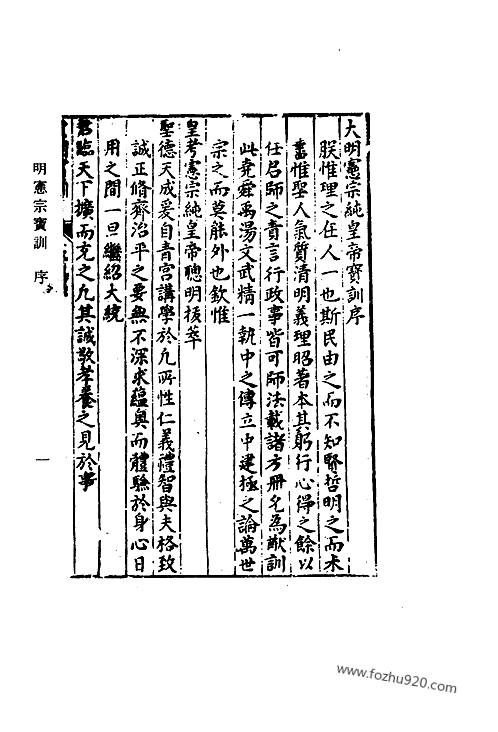 大明憲宗純皇帝寶訓序
朕惟理之在人一也斯民由之而不知賢哲明之而未
盡惟聖人氣質清明義理昭著本其躬行心得之餘以
任君師之責言行政事皆可師法載諸方冊允為猷訓
此堯舜禹湯文武精一執中之傳立中建極之論萬世
宗之而莫能外也欽惟
皇考憲宗純皇帝聰明拔萃
聖德天成爰自青宮講學於凡所性仁義禮智與夫格致
誠正脩齊治平之要無不深求蘊奧而體驗於身心日
用之間一旦繼紹大統
君臨天下擴而充之凡其誠敬孝養之見於事
明憲宗寶訓 序
一
www.fozhu920.com